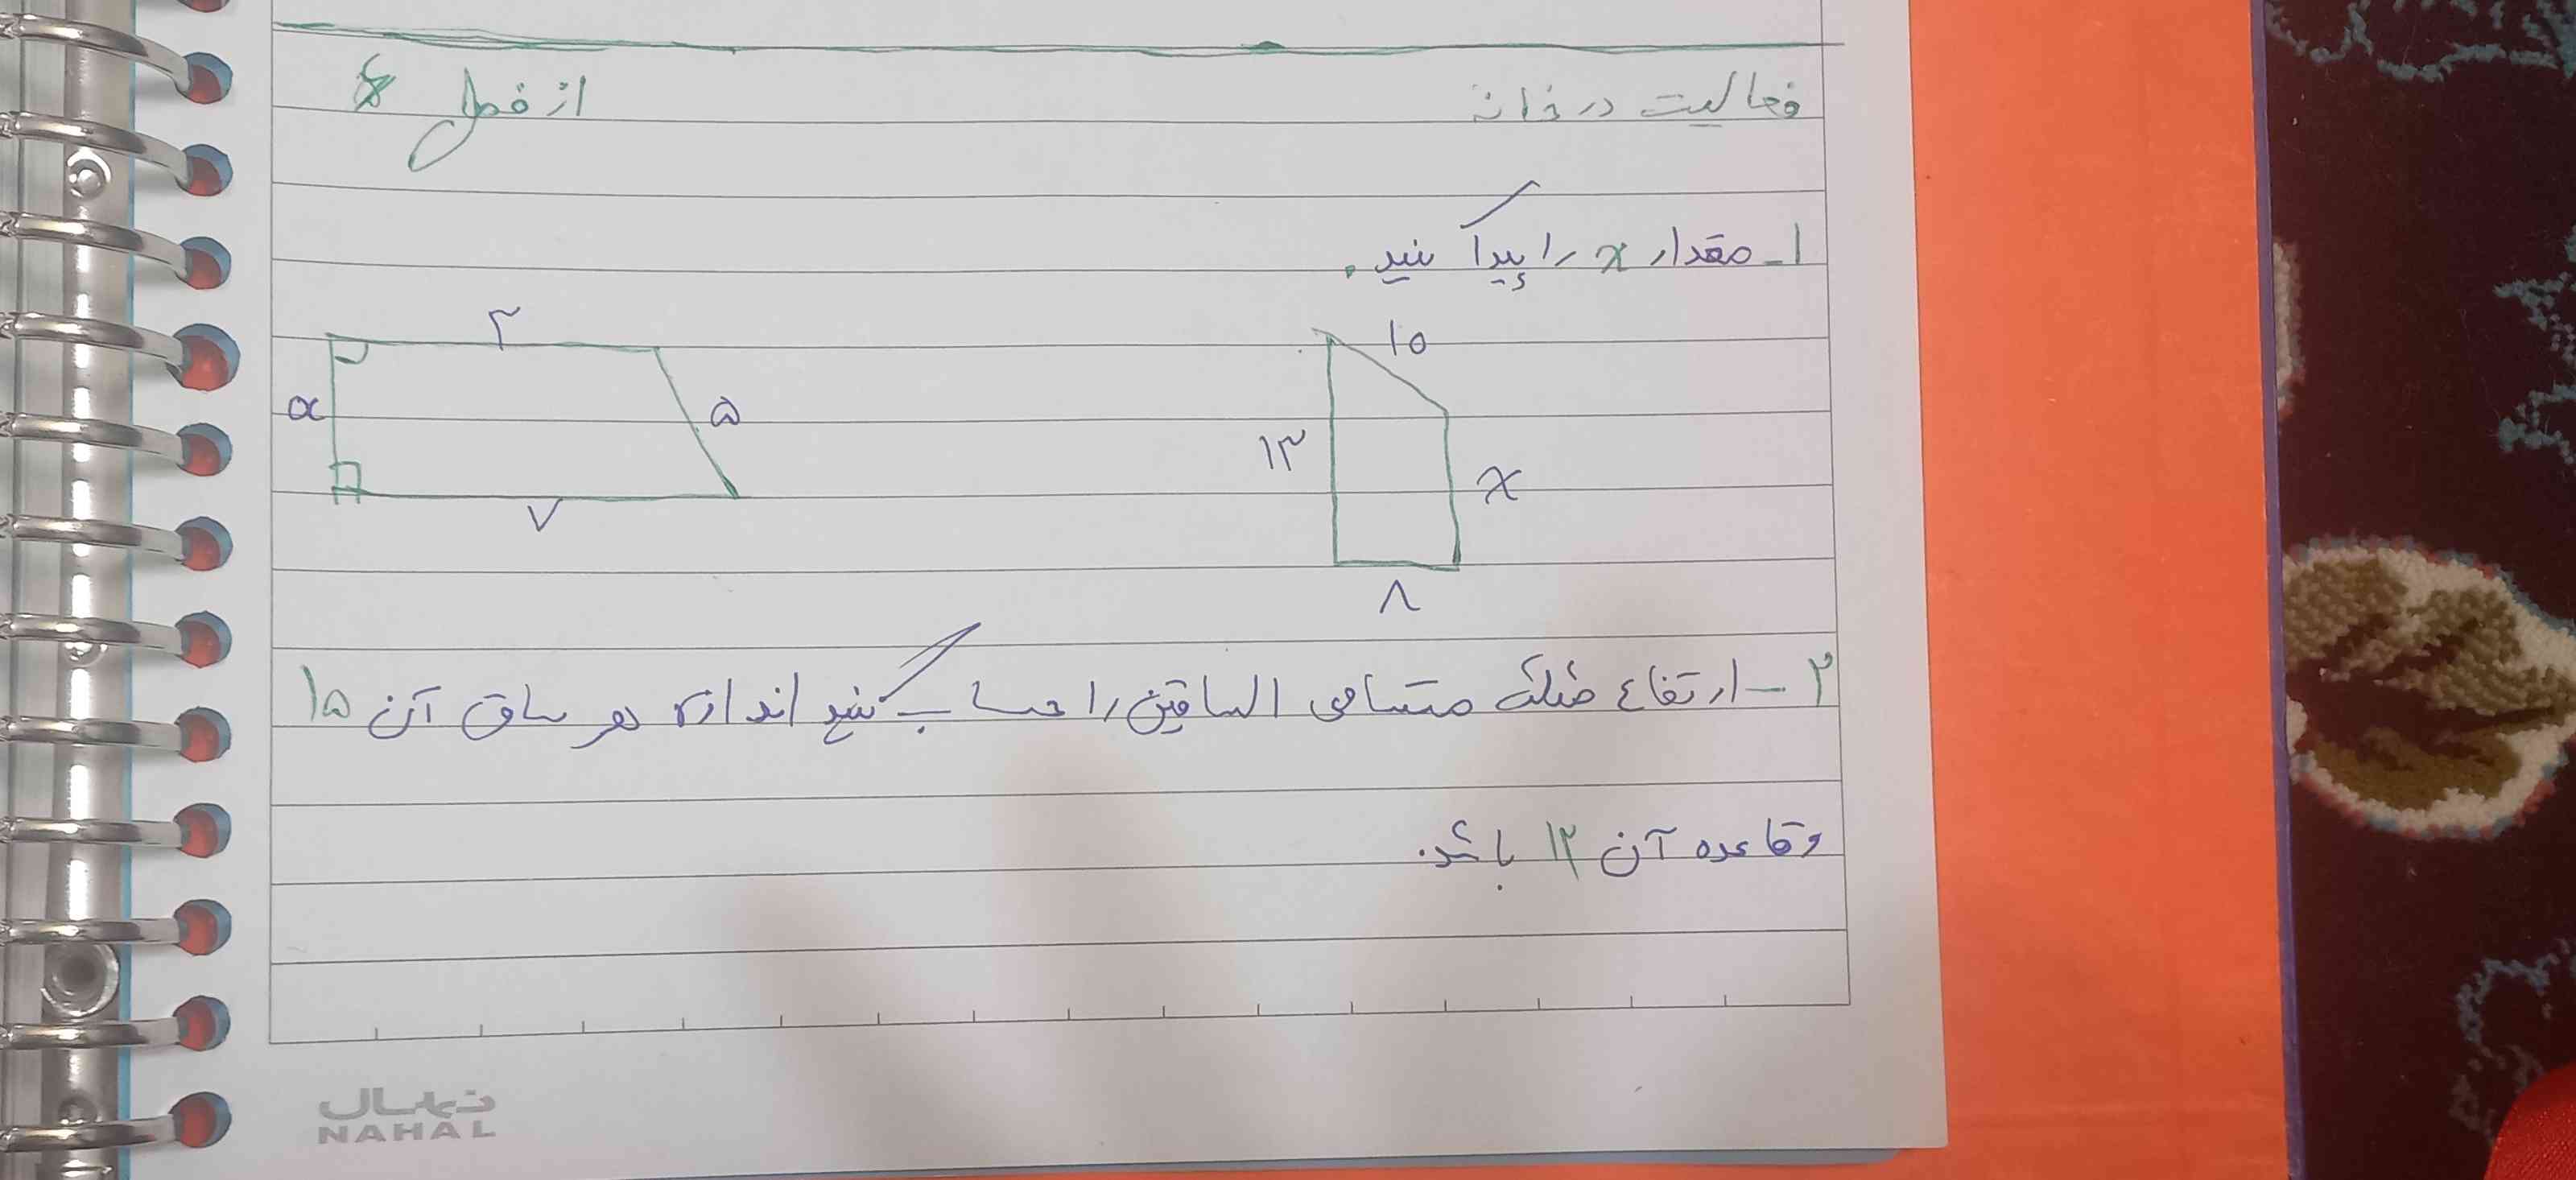 فعالیت در خانه از فصل ۶
۱- مقدار x را پیدا کنید.
۱۰
۱۳
x
۸
x
۵
۷
۲- ارتفاع مثلث متساوی الساقین را حساب کنید اندازه هر ساق آن ۱۵
و قاعده آن ۱۲ باشد.
نهال
NAHAL